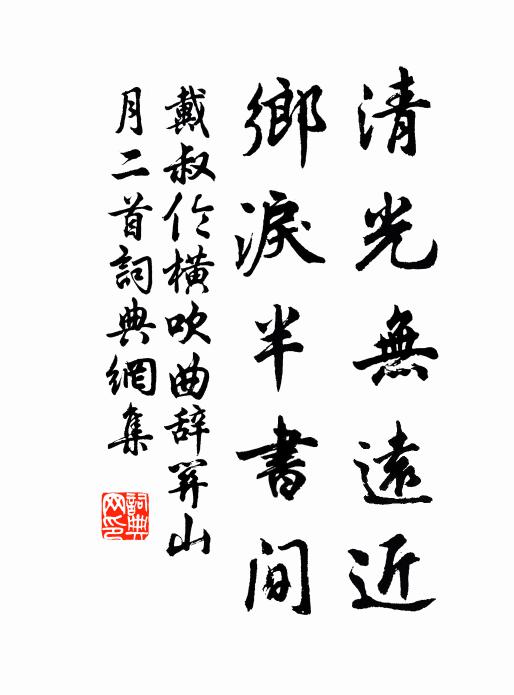 清光無遠近
鄉淚半書间
戴叔伦横吹曲辞関山
月二首詞典網集
詞典網印